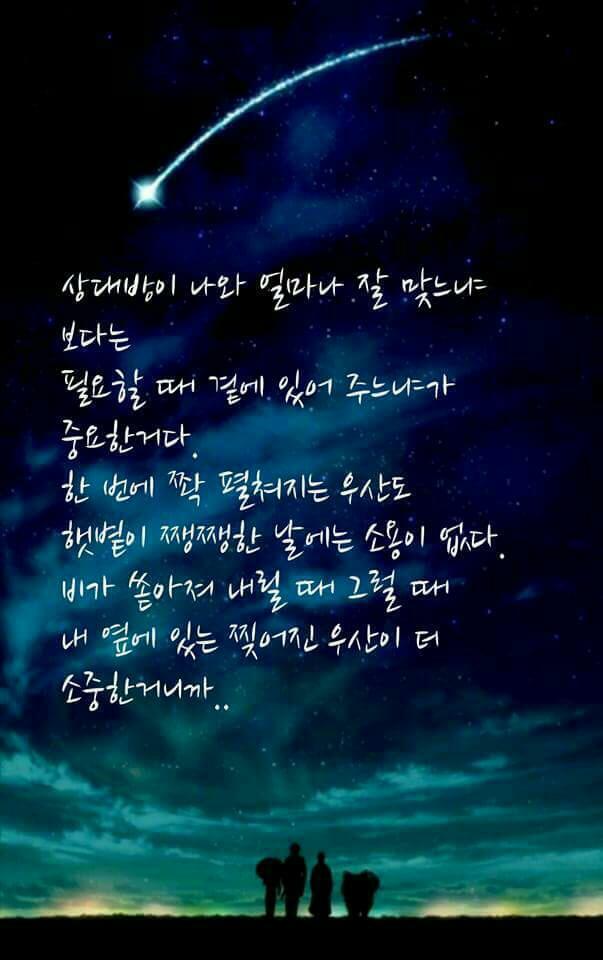 상대방이 나와 얼마나 잘 맞느냐
보다는
필요할 때 곁에 있어 주느냐가
중요한거다.
한 번에 쫙 펼쳐지는 우산도
햇볕이 쨍쨍한 날에는 소용이 없다.
비가 쏟아져 내릴 때 그럴 때
내 옆에 있는 찢어진 우산이 더
소중한거니까..